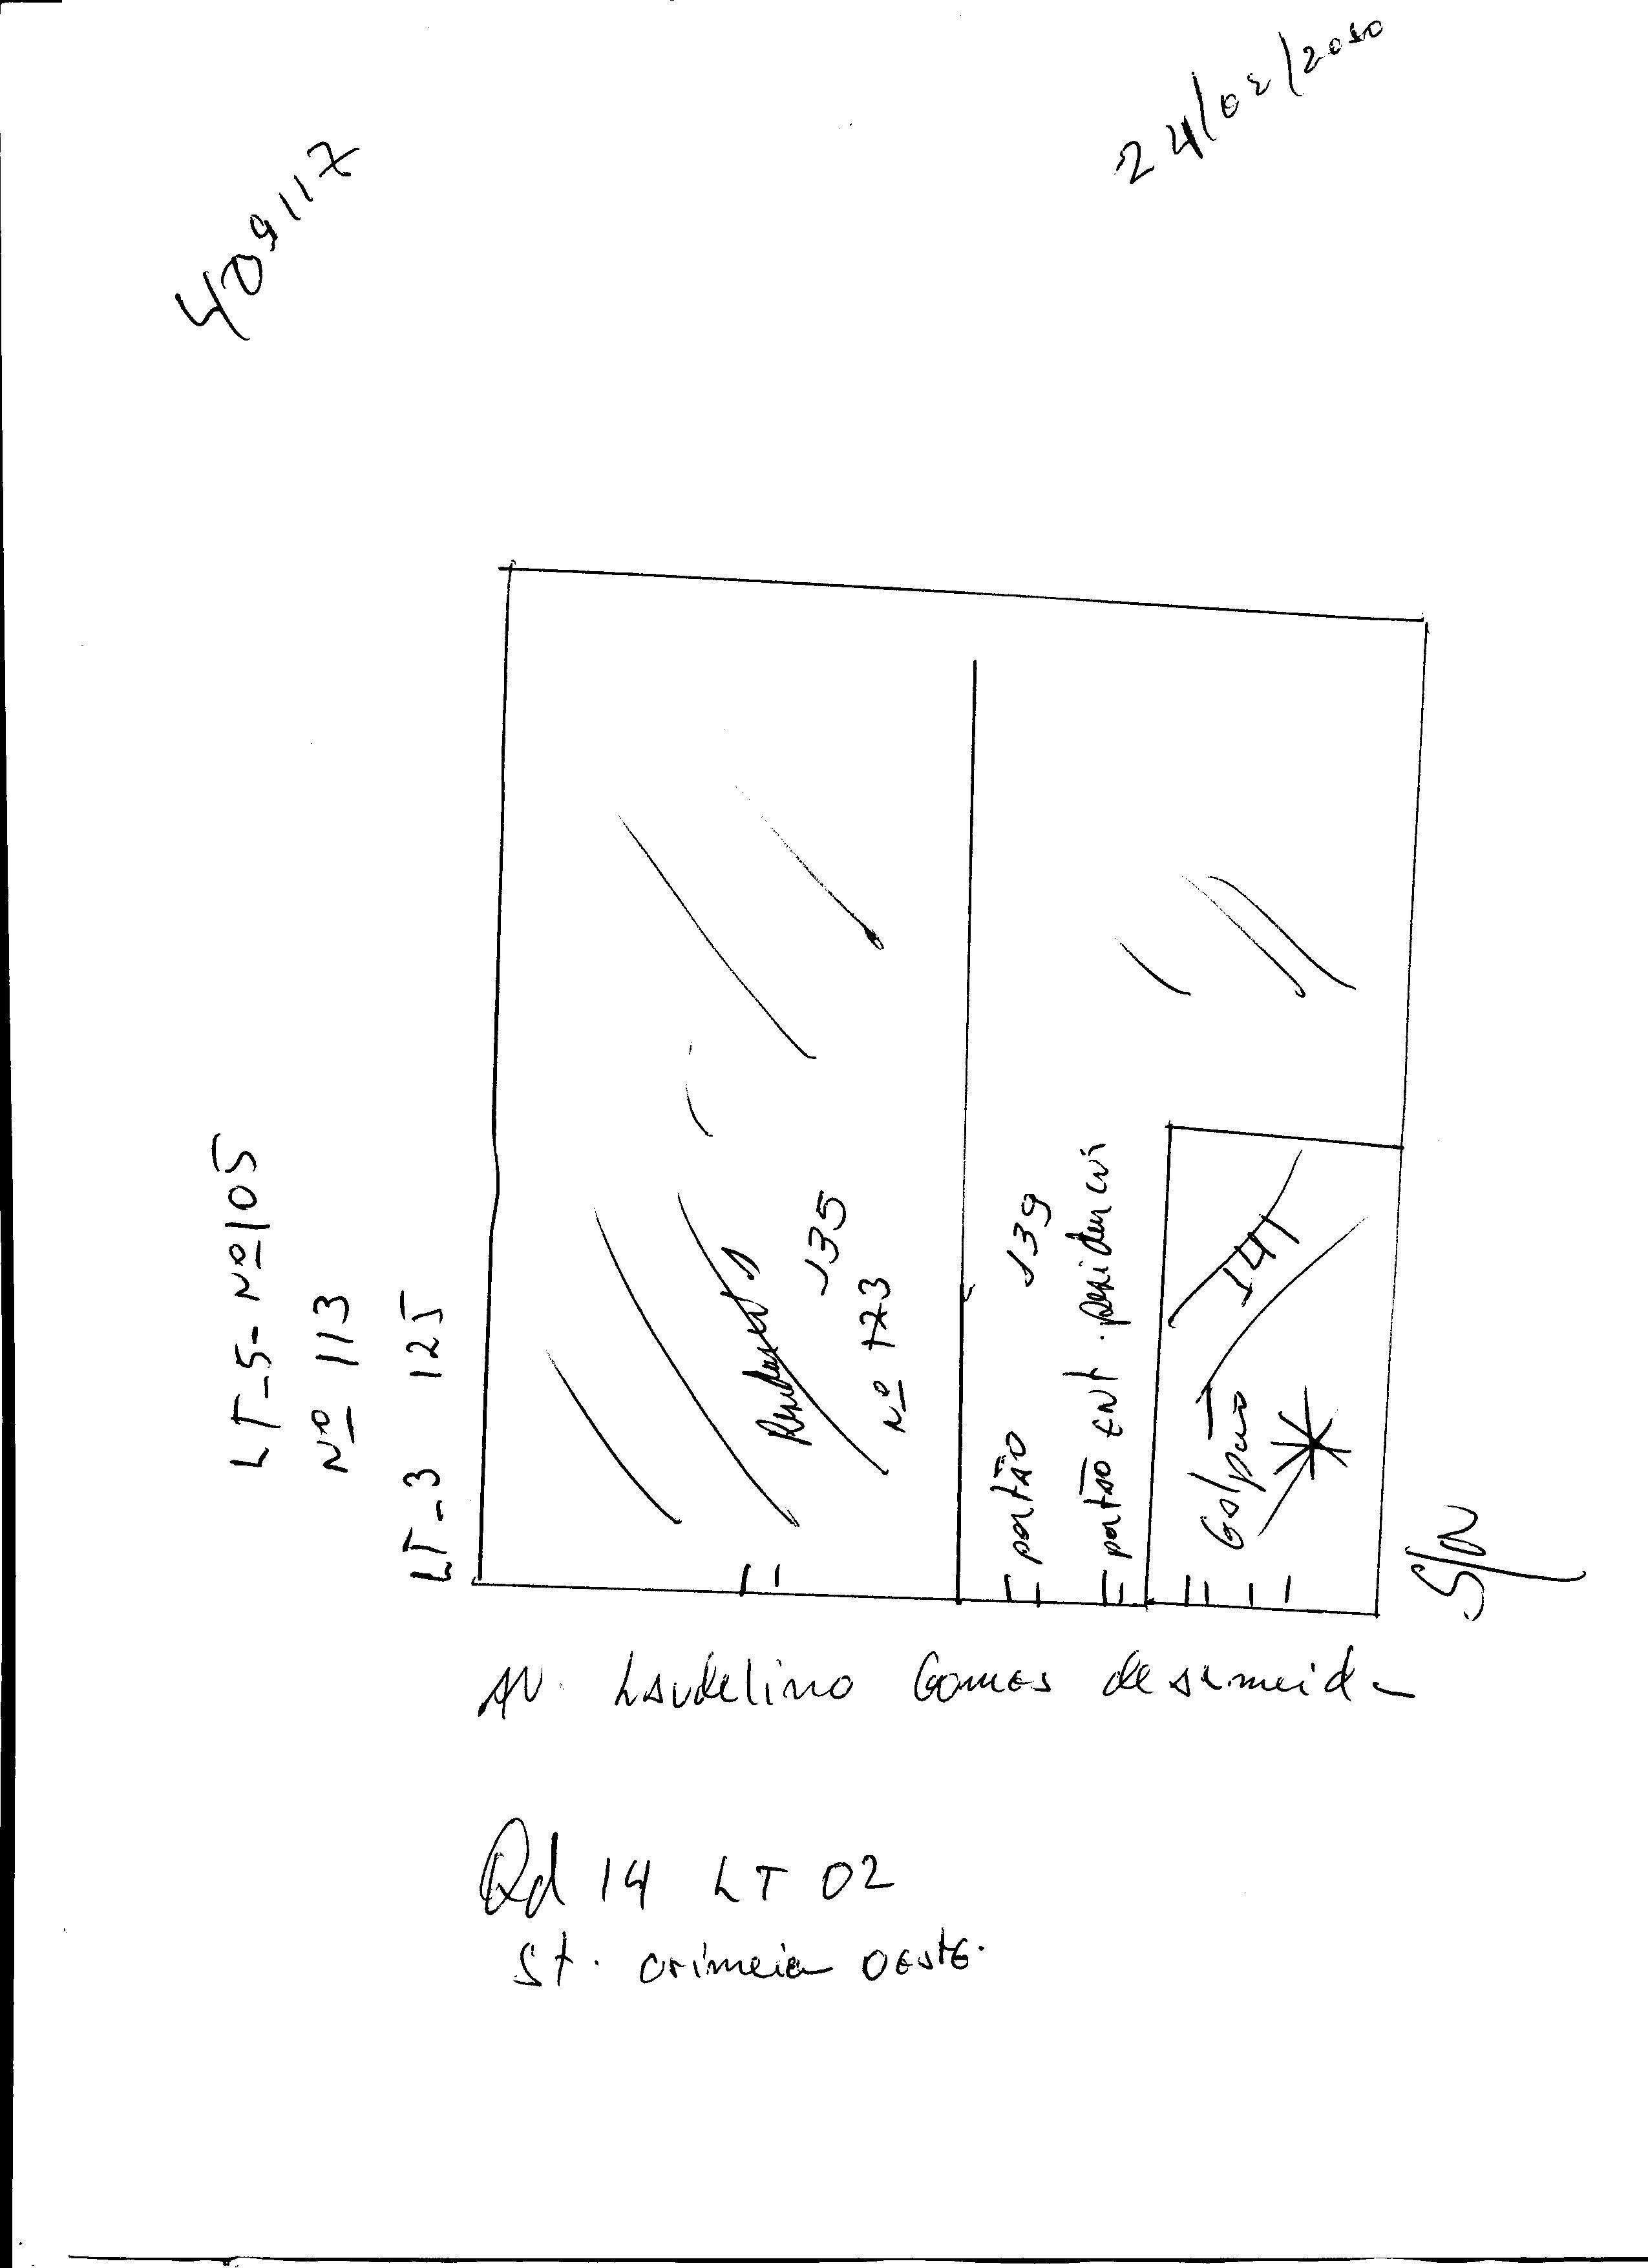 409117
24/02/2010
LT-5-Nº105
Nº 113
LT-3 125
135
Nº 123
portão 139
portão ENT.
141
Galpão
S/N
AV. Laudelino Gomes de Almeida
Qd 14 LT 02
St. Crimeia OESTE.